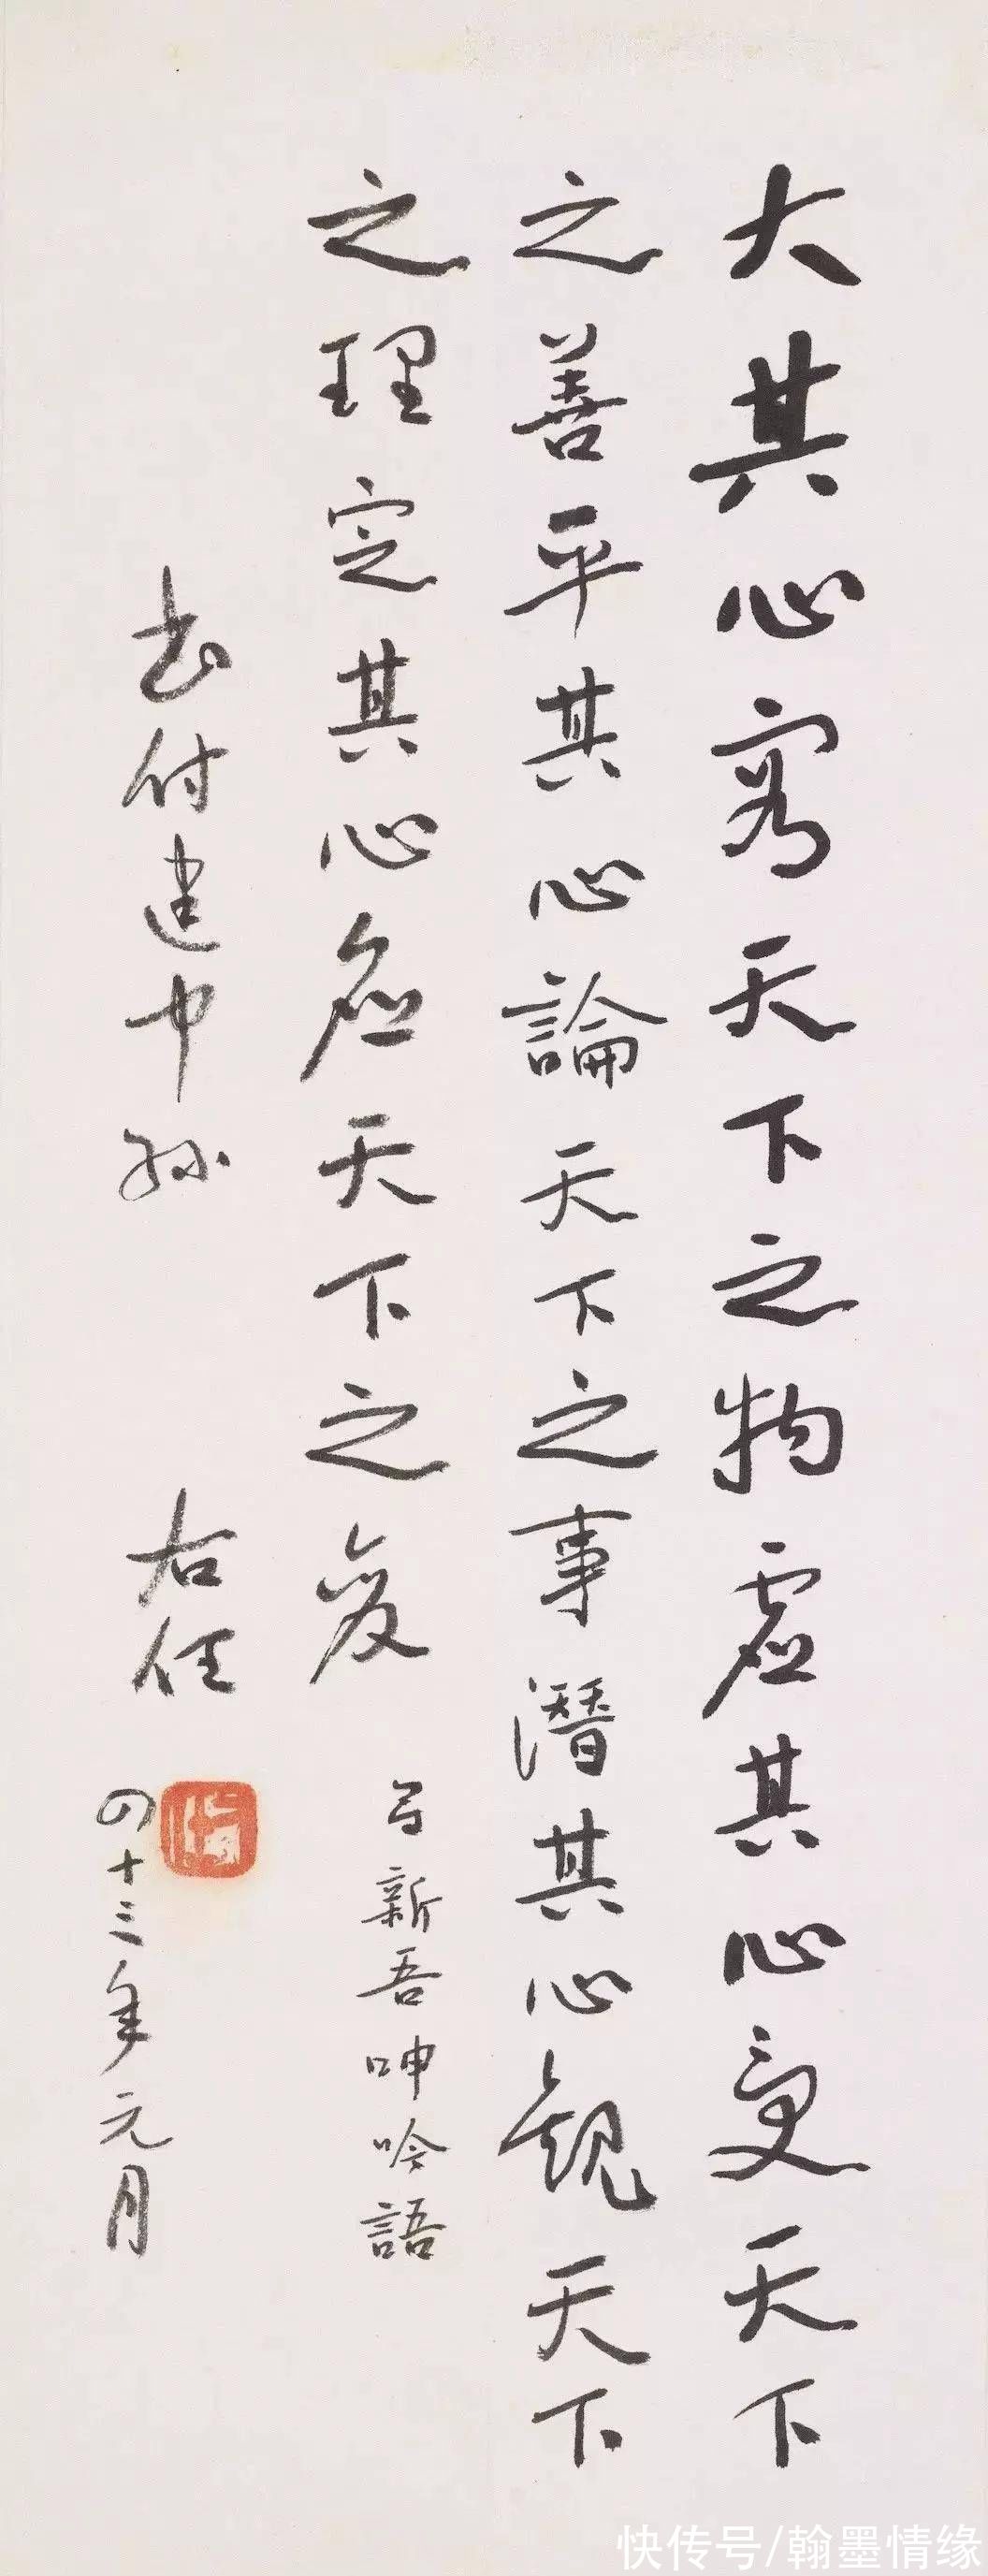 大其心容天下之物虛其心受天下
之善平其心論天下之事潛其心觀天下
之理定其心應天下之變
呂新吾呻吟語
書付建中孫
右任
四十三年元月
快传号/翰墨情缘